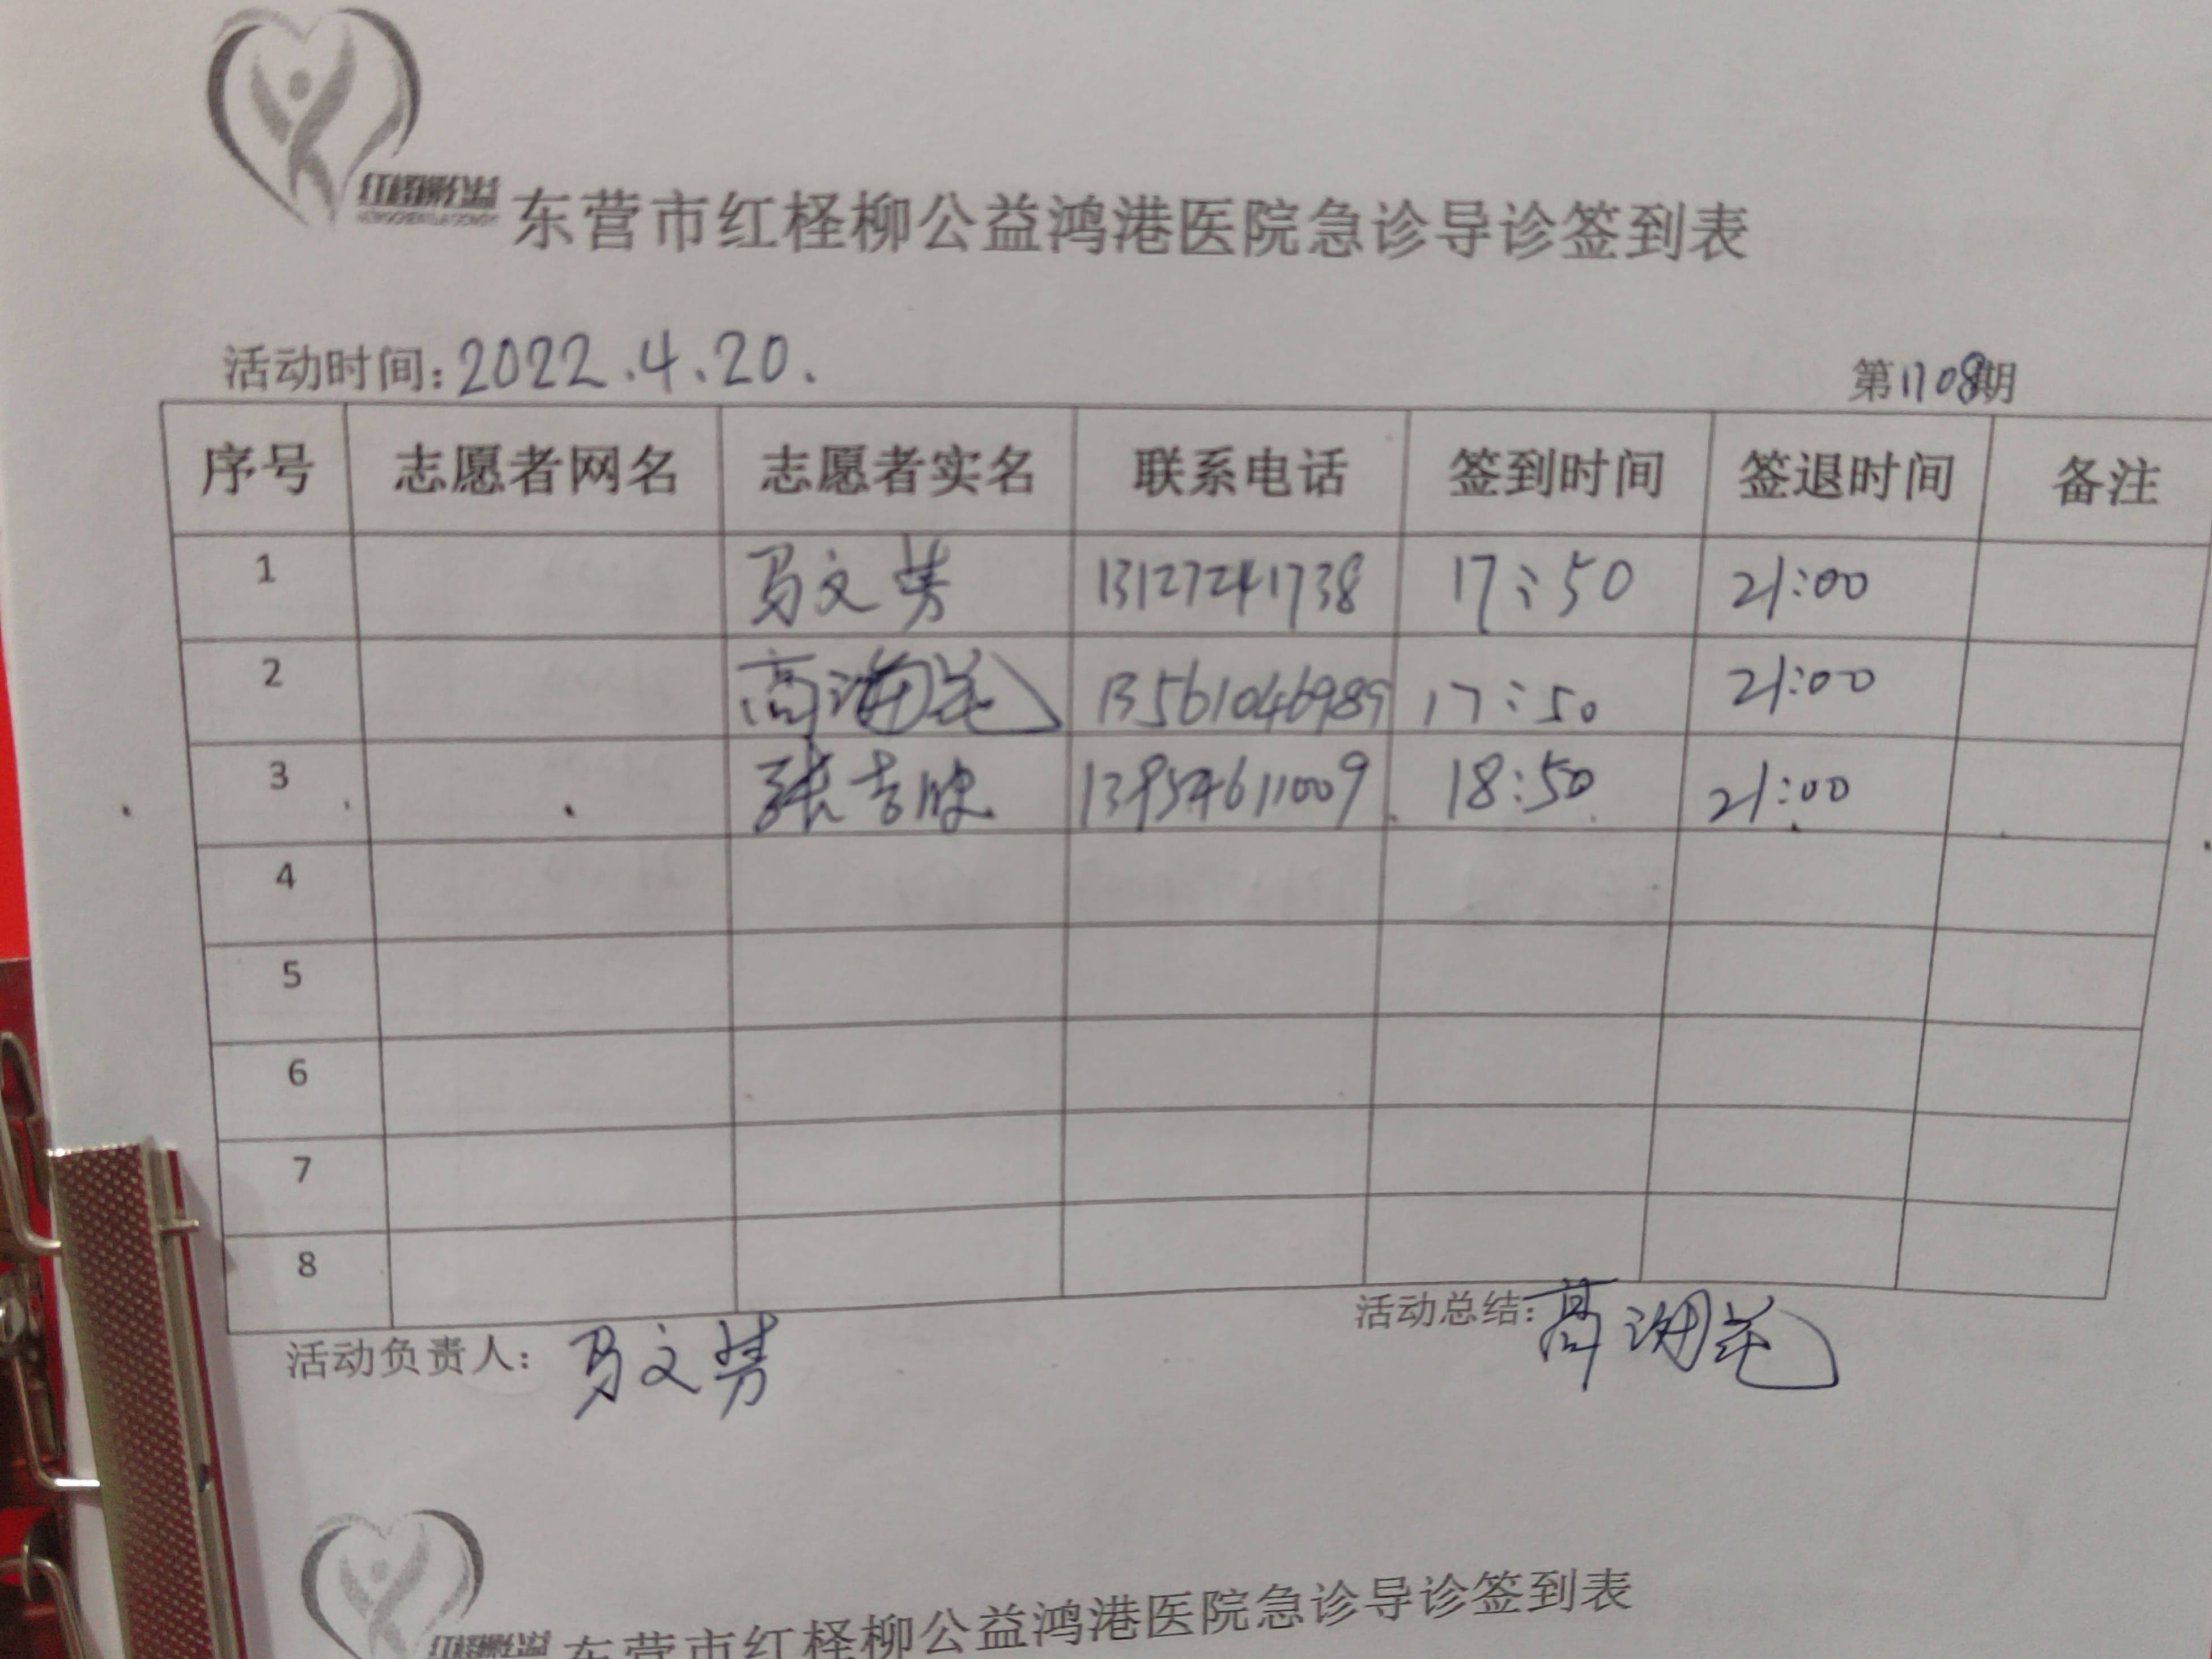 红柽柳公益
东营市红柽柳公益鸿港医院急诊导诊签到表
活动时间:2022.4.20.
第1108期
序号 志愿者网名 志愿者实名 联系电话 签到时间 签退时间 备注
1 马文芳 13127241738 17:50 21:00
2 高海花 13561046989 17:50 21:00
3 张吉欣 13954611009 18:50 21:00
4
5
6
7
8
活动负责人: 马文芳
活动总结: 高海花
红柽柳公益
东营市红柽柳公益鸿港医院急诊导诊签到表